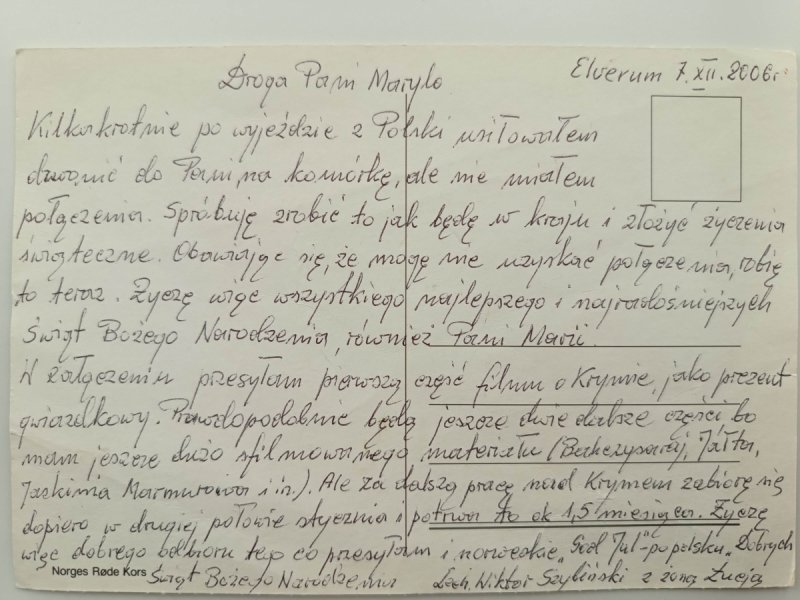 Elverum 7.XII.2006r
Droga Pani Marylo
Kilkakrotnie po wyjeździe z Polski usiłowałem
dzwonić do Pani, na komórkę, ale nie miałem
połączenia. Spróbuję zrobić to jak będę w kraju i złożyć życzenia
świąteczne. Obawiając się, że mogę nie uzyskać połączenia, robię
to teraz. Życzę więc wszystkiego najlepszego i najradośniejszych
Świąt Bożego Narodzenia, również Pani Marii.
W załączeniu przesyłam pierwszą część filmu o Krymie, jako prezent
gwiazdkowy. Prawdopodobnie będą jeszcze dwie dalsze części, bo
mam jeszcze dużo sfilmowanego materiału (Bakczysaraj, Jałta,
Jaskinia Marmurowa i in.). Ale za dalszą pracę nad Krymem zabiorę się
dopiero w drugiej połowie stycznia i potrwa to ok 1,5 miesiąca. Życzę
więc dobrego odbioru tego co przesyłam i norweskie „God Jul" - po polsku „Dobrych
Świąt Bożego Narodzenia Lech Wiktor z żoną Łucją
Norges Røde Kors